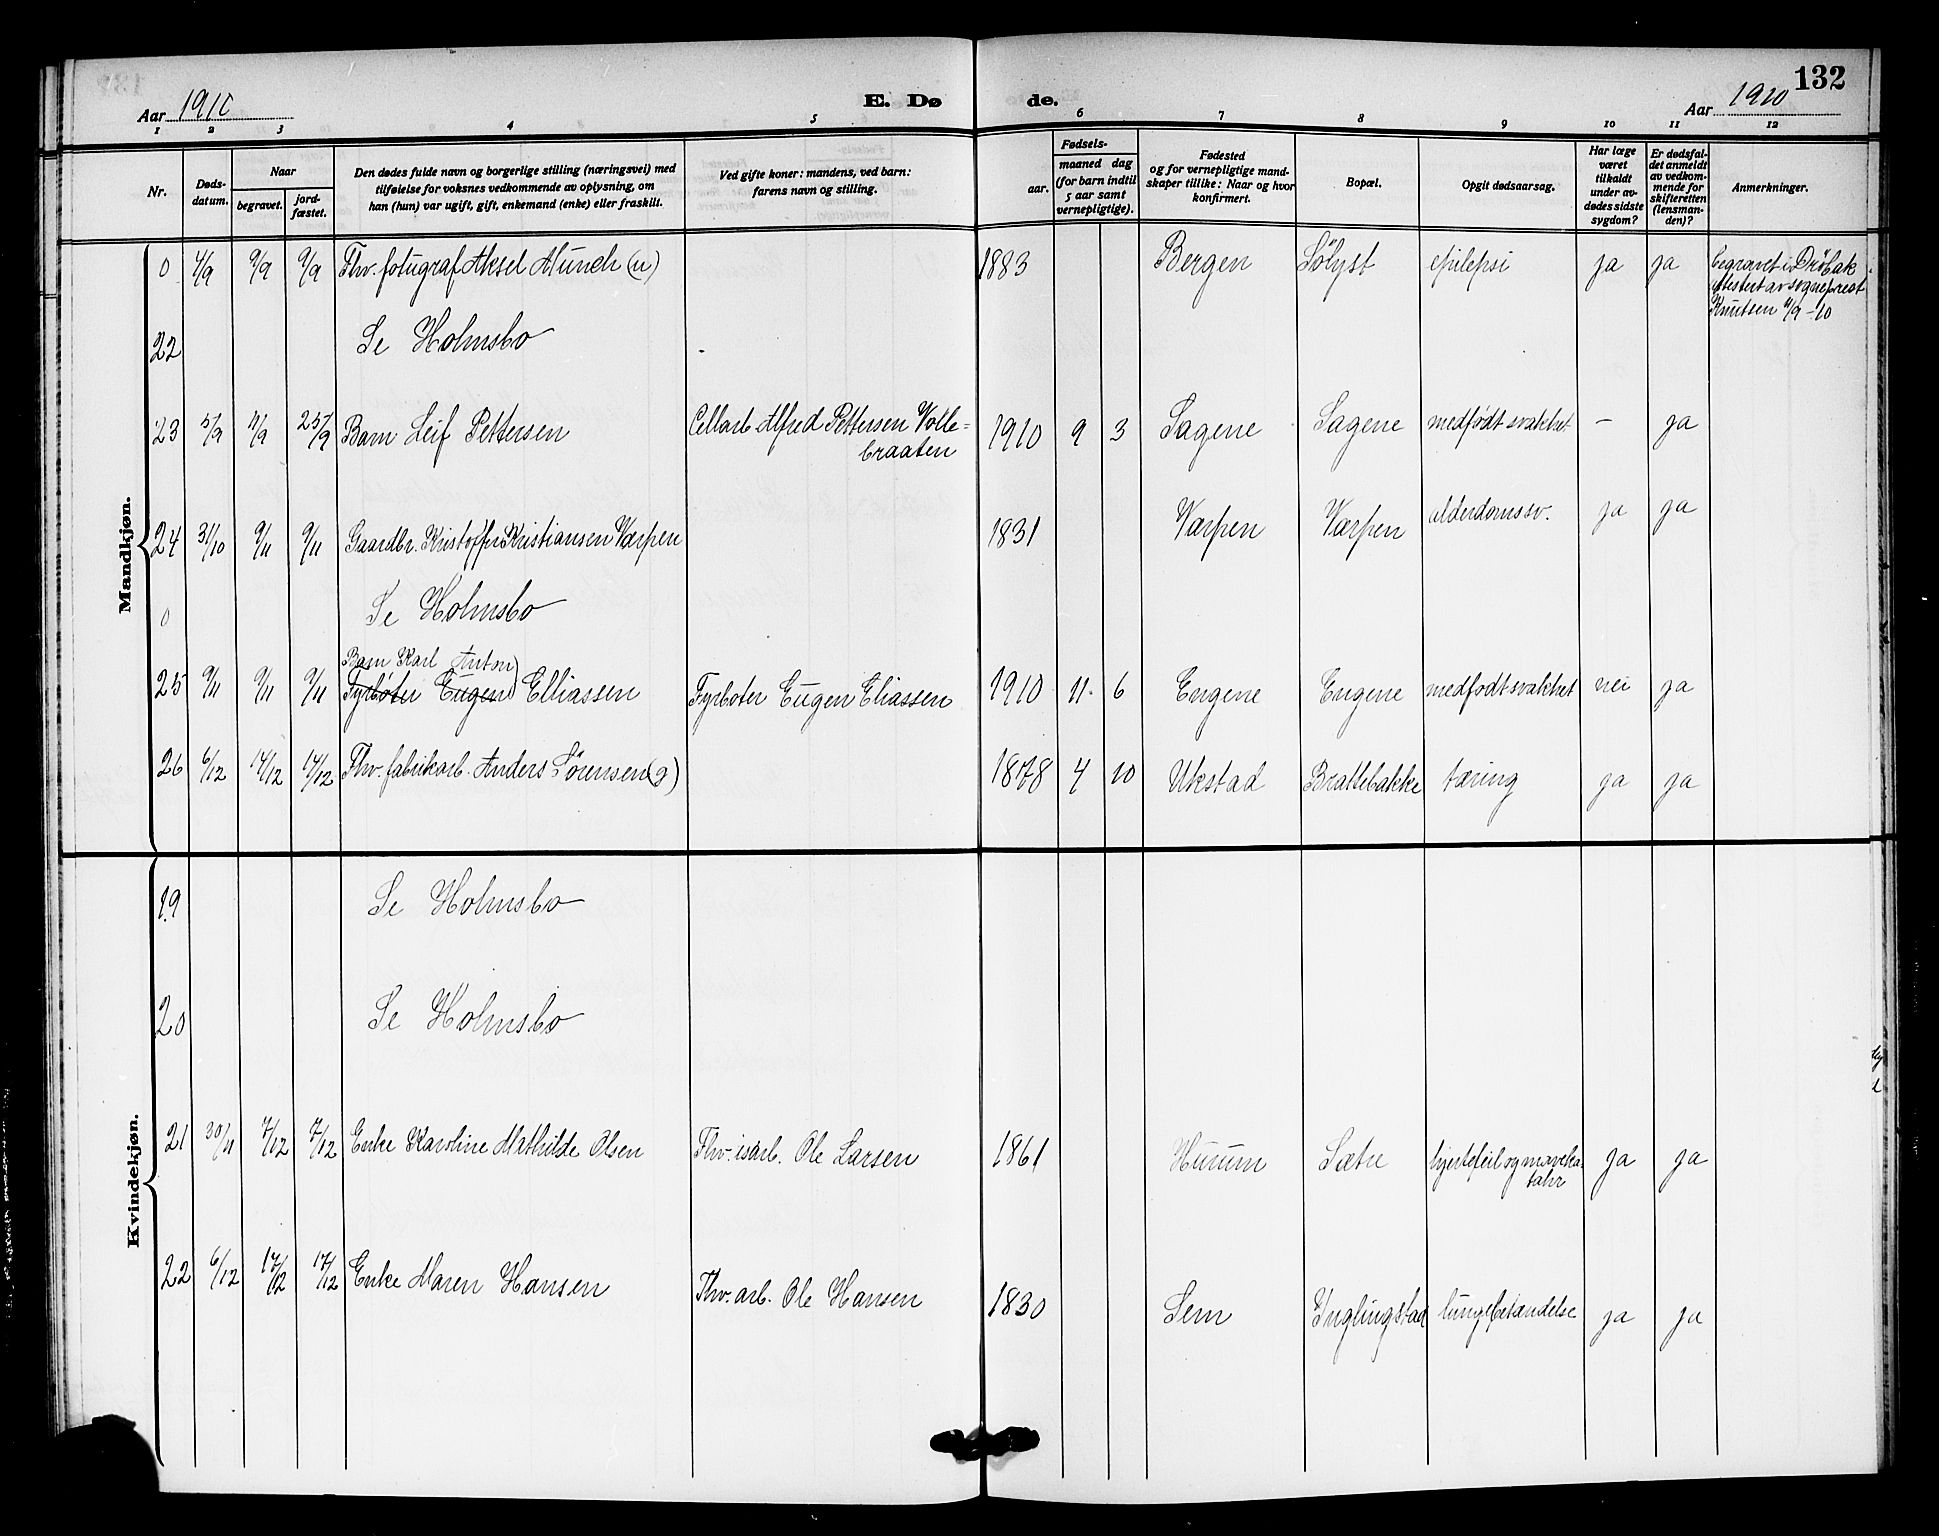 132
Aar 1910 E. Dø de. Aar 1910
1 2 3 4 5 6 7 8 9 10 11 12
Nr.
Døds-
datum.
Naar
begravet.
jord-
fæstet.
Den dødes fulde navn og borgerlige stilling (næringsvei) med
tilføielse for voksnes vedkommende av oplysning, om
han (hun) var ugift, gift, enkemand (enke) eller fraskilt.
Ved gifte koner: mandens, ved barn:
farens navn og stilling.
Fødsels-
aar.
maaned dag
(for barn indtil
5 aar samt
vernepligtige).
Fødested
og for vernepligtige mand-
skaper tillike: Naar og hvor
konfirmert.
Bopæl.
Opgit dødsaarsag.
Har læge
været
tilkaldt
under av-
dødes sidste
sygdom?
Er dødsfal-
det anmeldt
av vedkom-
mende for
skifteretten
(lensman-
den)?
Anmerkninger.
Mandkjøn.
0 4/9 9/9 9/9 Fhv. fotograf Aksel Munch (u) 1883 Bergen Sölyst epilepsi ja ja begravet i Dröbak
attestert av sogneprest
Knutsen 9/9-10
22 Se Holmsbo
23 5/9 11/9 25/9 Barn Leif Pettersen Cellarb Alfred Pettersen Volle=
braaten 1910 9 3 Sagene Sagene medfödt svakhet - ja
24 31/10 9/11 9/11 Gaardbr. Kristoffer Kristiansen Værpen 1831 Værpen Værpen alderdomssv. ja ja
0 Se Holmsbo
Barn Karl Anton
25 9/11 9/11 9/11 Fyrböter Eugen Elliassen Fyrboter Eugen Eliassen 1910 11 6 Engene Engene medfodt svakhet nei ja
26 6/12 14/12 14/12 Fhv. fabrikarb. Anders Sörensen (g) 1878 4 10 Ukstad Brattebakke tæring ja ja
Kvindekjøn.
19 Se Holmsbo
20 Se Holmsbo
21 30/11 7/12 7/12 Enke Karoline Mathilde Olsen Fhv. isarb. Ole Larsen 1861 Hurum Sætre hjertefeil og maveka-
tahr ja ja
22 6/12 17/12 17/12 Enke Maren Hansen Fhv. arb. Ole Hansen 1830 Sem Ynglingstad lungebetændelse ja ja